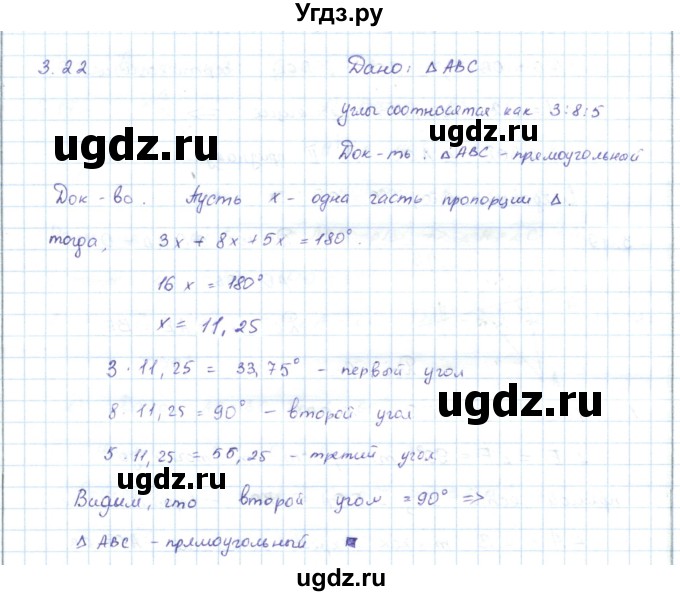 Угдз.ру
3.22 Дано: Δ ABC
углы соотносятся как 3:8:5
ugdz.ru
Док-ть: Δ ABC - прямоугольной
Док-во. Пусть x - одна часть пропорции Δ.
тогда, 3x + 8x + 5x = 180°.
16 x = 180°
x = 11,25
3 · 11,25 = 33,75° - первый угол
8 · 11,25 = 90° - второй угол
ugdz.ru
5 · 11,25 = 56,25 - третий угол
ugdz.ru
Видим, что второй угол = 90° =>
Δ ABC - прямоугольный
ugdz.ru